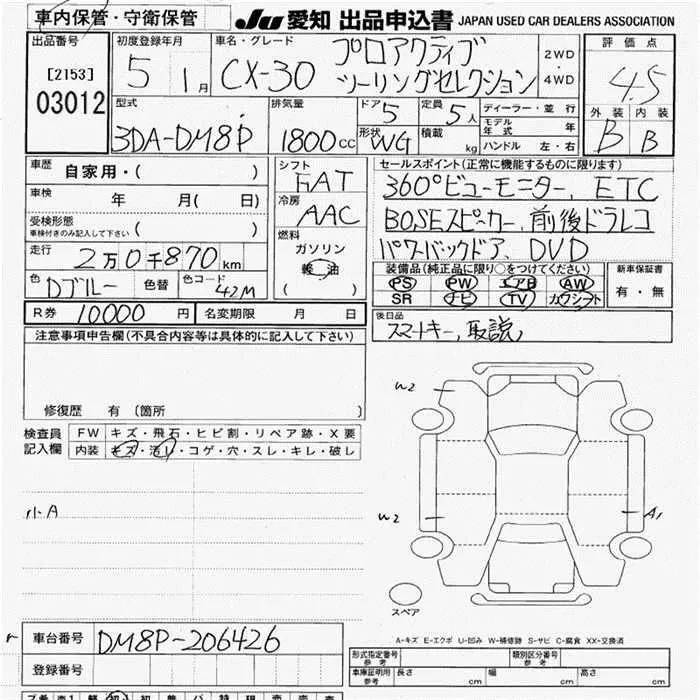 車内保管・守衛保管
JU 愛知 出品申込書 JAPAN USED CAR DEALERS ASSOCIATION
出品番号 初度登録年月 車名・グレード 評価点
[2153] 5 1月 CX-30 プロアクティブ 2WD
03012 ツーリングセレクション 4WD 4.5
型式 排気量 ドア 定員 ディーラー・並行 外装 内装
3DA-DM8P 1800CC 5 5人 モデル年式 年 B B
形状 WG 積載 kg ハンドル 左・右
車歴 自家用・( ) シフト FAT セールスポイント(正常に機能するものに限ります)
車検 年 月( 日) 冷房 AAC 360°ビューモニター、ETC
受検形態 BOSEスピーカー、前後ドラレコ
車検付きのみ記入して下さい ( ) 燃料 パワーバックドア、DVD
走行 2万0千870km ガソリン 装備品(純正品に限り○をつけてください) 新車保証書
軽油 PS PW エアB AW 有・無
色 Dブルー 色替 色カラーコード 42M ( ) SR ナビ TV カワシート
R券 10000円 名変期限 月 日 後日品
スマートキー、取説、
注意事項申告欄(不具合内容等は具体的に記入して下さい)
修復歴 有 〔箇所 〕
検査員 FW キズ・飛石・ヒビ割・リペア跡・X要
記入欄 内装 キズ・汚レ・コゲ・穴・スレ・キレ・破レ
W2
小A
W2 A1
スペア
A-キズ E-エクボ U-凹み W-補修跡 S-サビ C-腐食 XX-交換済
車台番号 DM8P-206426
形式指定番号 参考 類別区分番号 参考
登録番号 車庫証明用 参考 長さ cm 幅 cm 高さ cm